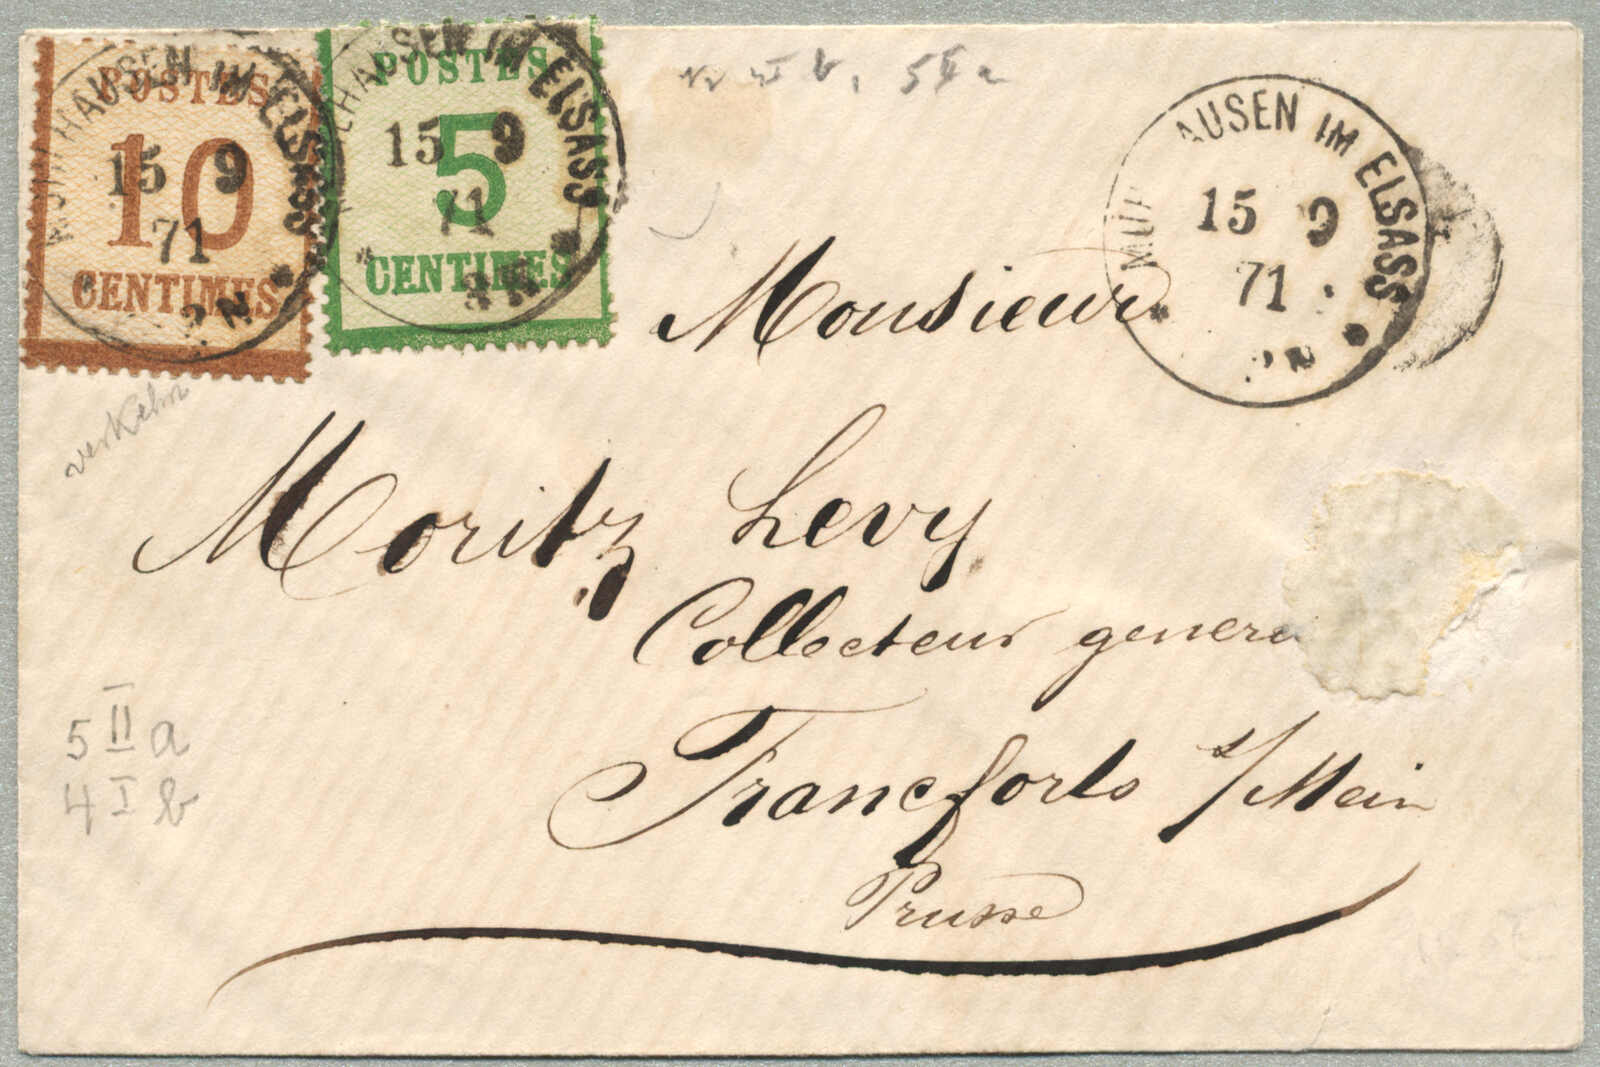 POSTES
10
CENTIMES
MÜLHAUSEN IM ELSASS
15 9
71
2 N
POSTES
5
CENTIMES
MÜLHAUSEN IM ELSASS
15 9
71
2 N
b, 5 II a
AUSEN IM ELSASS
15 9
71
2 N
Monsieur
verkehrt
Moritz Levy
Collecteur genera
Francforts s/Mein
Prusse
5 II a
4 I b